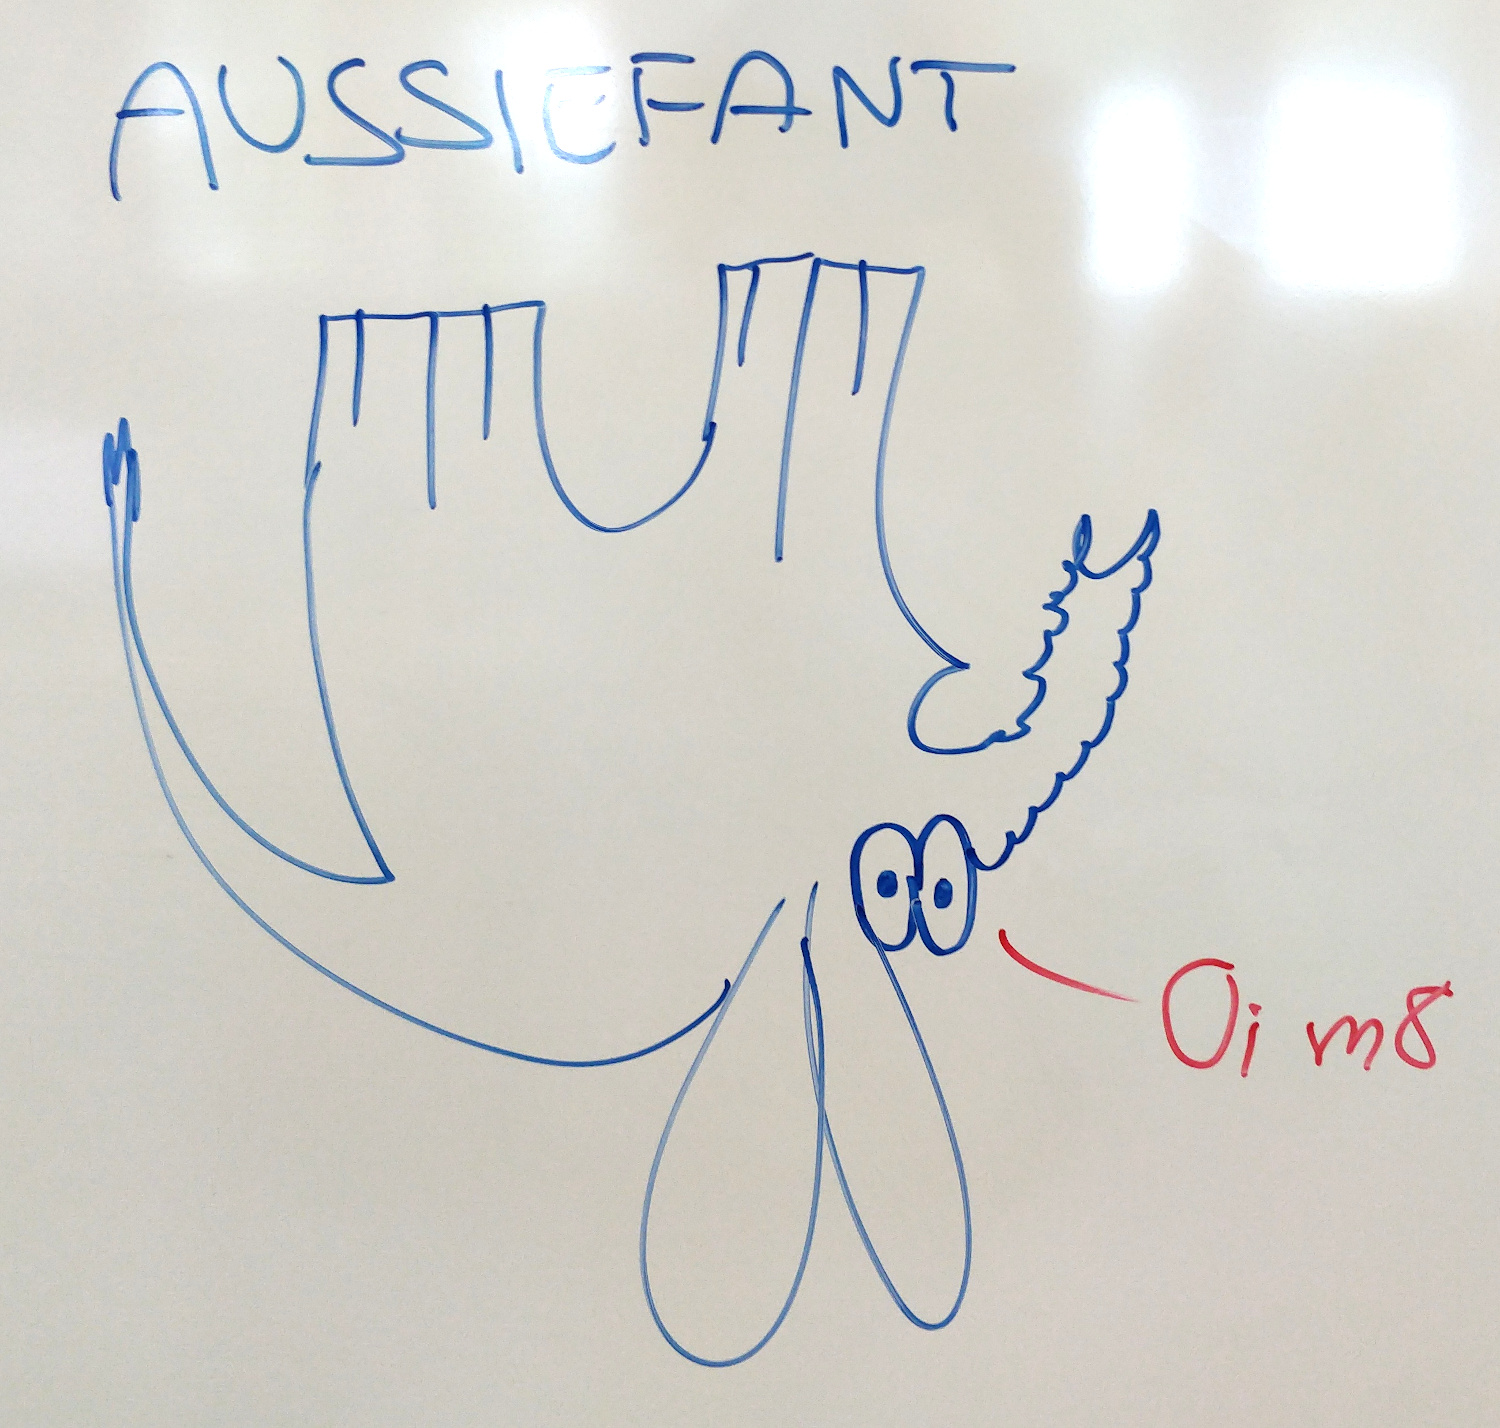 AUSSIEFANT
Oi m8